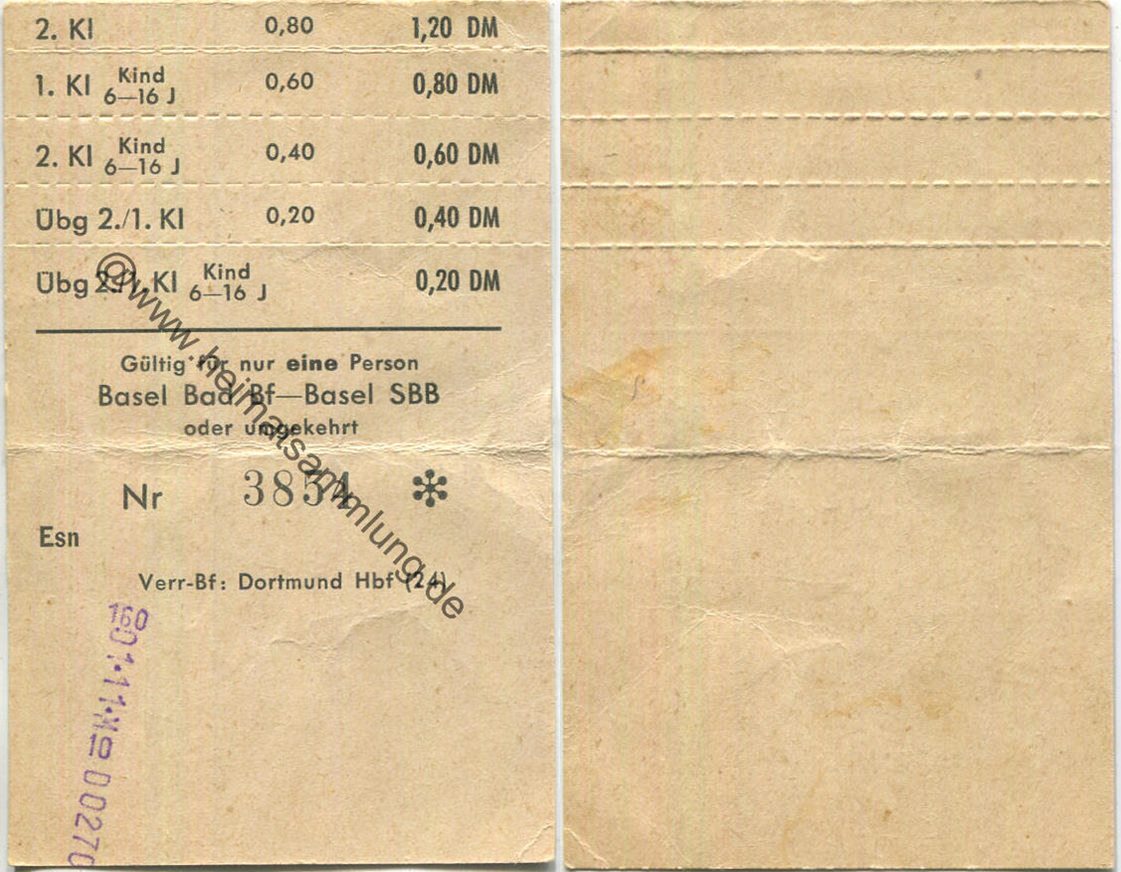 2. Kl 0,80 1,20 DM
1. Kl Kind 6—16 J 0,60 0,80 DM
2. Kl Kind 6—16 J 0,40 0,60 DM
Übg 2./1. Kl 0,20 0,40 DM
Übg 2./1. Kl Kind 6—16 J 0,20 DM
Gültig für nur eine Person
Basel Bad Bf—Basel SBB
oder umgekehrt
Nr 3854 *
Esn
Verr-Bf: Dortmund Hbf (24)
00270
@www.heimatsammlung.de